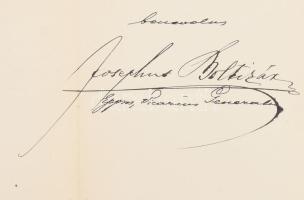 benevolus
Josephus Boltizár
Eppus, Vicarius Generalis